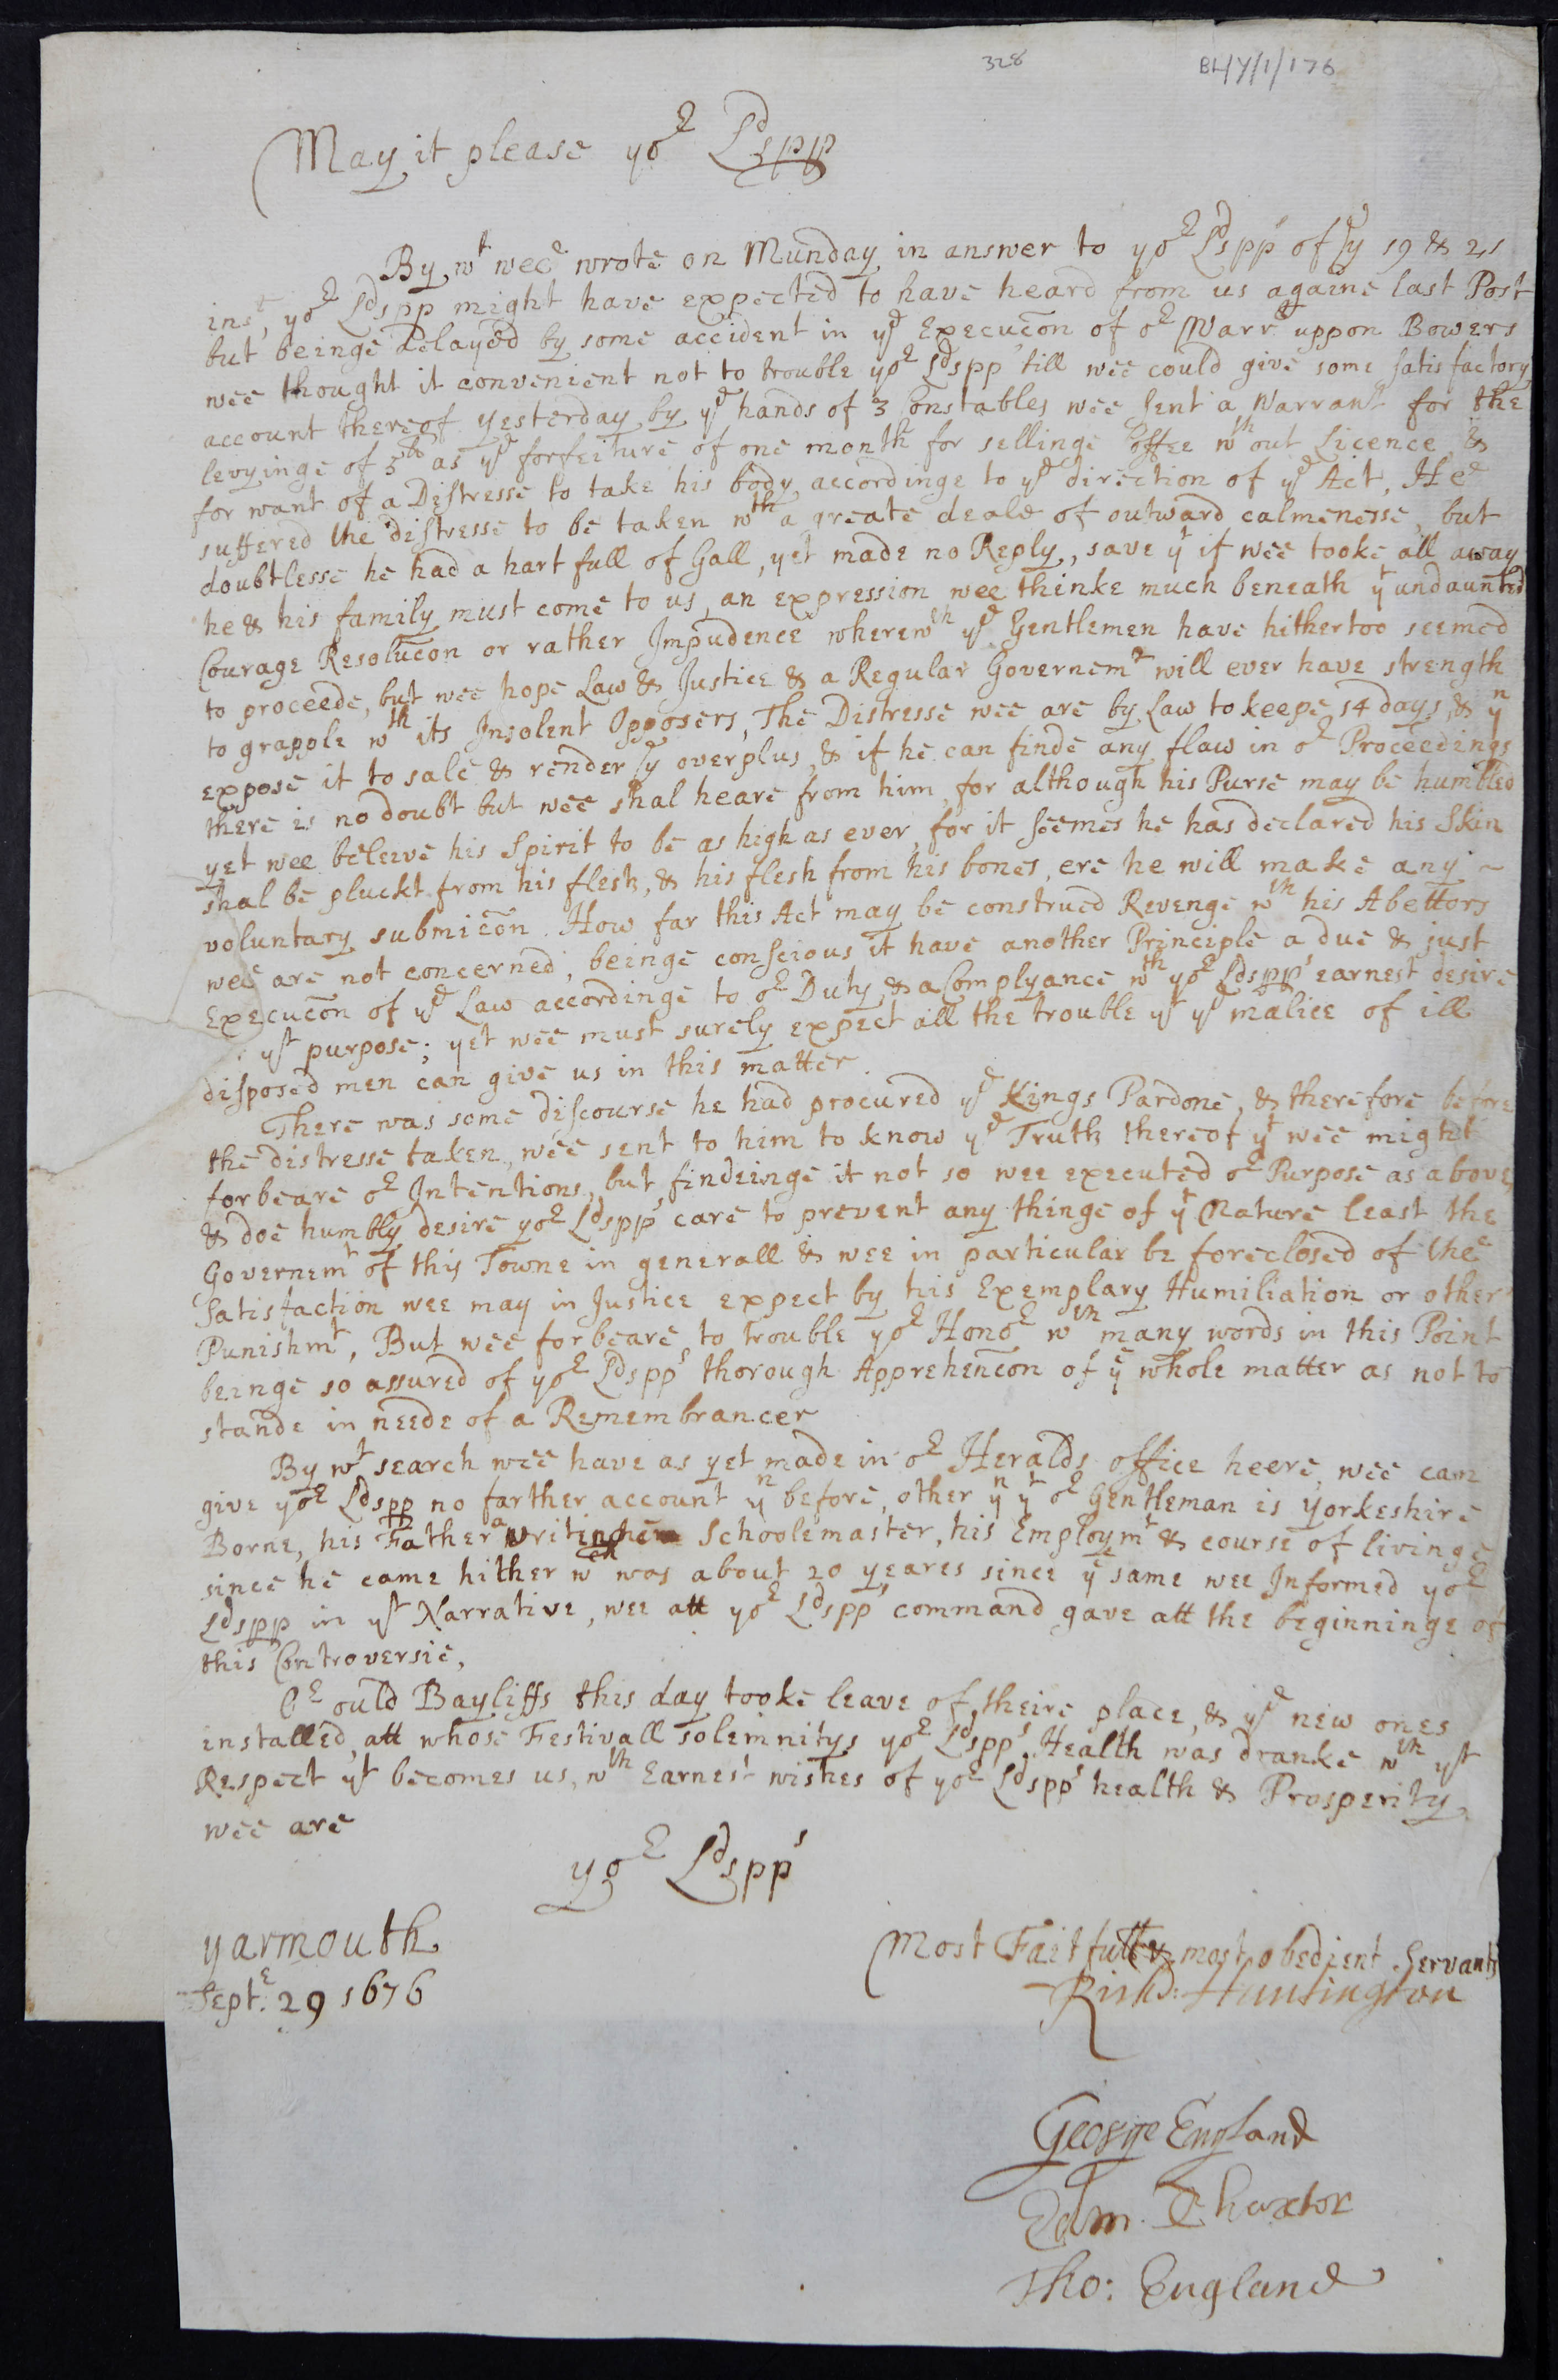 328
BL/Y/1/176
May it please yor Ldspp
By wt wee wrote on Munday in answer to yor Ldspps of ye 19 & 21
inst, yor Ldspp might have expected to have heard from us againe last Post
but beinge delayed by some accident in ye Execucõn of or Warrt uppon Bowers
wee thought it convenient not to trouble yor Ldspp till wee could give some satisfactory
account thereof yesterday by ye hands of 3 Constables wee sent a Warrant for the
levyinge of 5lb as ye forfeiture of one month for sellinge Coffee wthout Licence &
for want of a Distresse to take his body accordinge to ye direction of ye Act, Hee
suffered the distresse to be taken wth a greate deale of outward calmenesse, but
doubtlesse he had a hart full of Gall, yet made no Reply, save yt if wee tooke all away
he & his family must come to us, an expression wee thinke much beneath yt undaunted
Courage Resolucõn or rather Impudence wherewth ye Gentlemen have hithertoo seemed
to proceede, but wee hope Law & Justice & a Regular Governemt will ever have strength
to grapple wth its Insolent Opposers, The Distresse wee are by Law to keepe 14 days, & yn
expose it to sale & render ye overplus, & if he can finde any flaw in or Proceedings
there is no doubt but wee shal heare from him, for although his Purse may be humbled
yet wee beleive his Spirit to be as high as ever, for it seemes he has declared his Skin
shal be pluckt from his flesh, & his flesh from his bones, ere he will make any ~
voluntary submicõn. How far this Act may be construed Revenge wth his Abettors
wee are not concerned, beinge conscious it have another Principle a due & just
Execucõn of ye Law accordinge to or Duty, & a Complyance wth yor Ldspps earnest desire
yt purpose; yet wee must surely expect all the trouble yt ye malice of ill
disposed men can give us in this matter.
There was some discourse he had procured ye Kings Pardone, & therefore before
the distresse taken, wee sent to him to know ye Truth thereof yt wee might
forbeare or Intentions, but findeinge it not so wee executed or Purpose as above,
& doe humbly desire yor Ldspps care to prevent any thinge of yt Nature least the
Governemt of this Towne in generall & wee in particular be foreclosed of thee
Satisfaction wee may in Justice expect by his Exemplary Humiliation or other
Punishmt, But wee forbeare to trouble yor Honor wth many words in this Point
beinge so assured of yor Ldspps thorough Apprehencõn of ye whole matter as not to
stande in neede of a Remembrancer
By wt search wee have as yet made in or Heralds office heere, wee can
give yor Ldspp no farther account yn before, other yn yt or Gentleman is Yorkeshire
Borne, his Father a writinge Schoolemaster, his Employmt & course of livinge
since he came hither wch was about 20 yeares since ye same wee Informed yor
Ldspp in yt Narrative, wee att yor Ldspps command gave att the beginninge of
this Controversie,
Or ould Bayliffs this day tooke leave of theire place, & ye new ones
installed, att whose Festivall solemnitys yor Ldspps Health was dranke wth yt
Respect yt becomes us, wth Earnest wishes of yor Ldspps health & Prosperity
wee are
yor Ldspps
Yarmouth
Septr. 29 1676
Most Faitfull & most obedient Servants
Richd: Huntington
George England
Edm. Thaxter
Tho: England